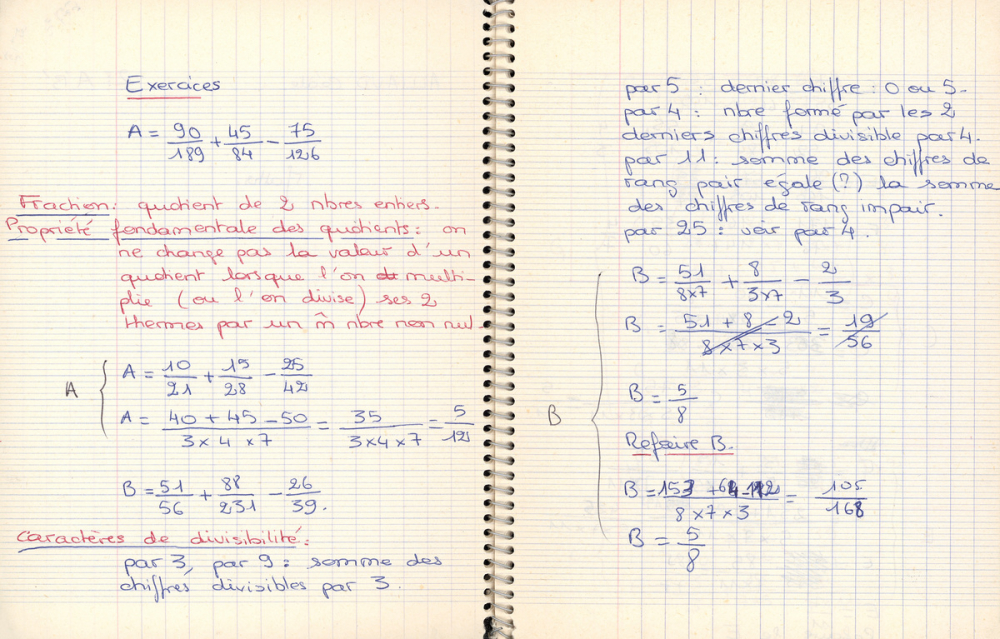 Exercices
A = 90/189 + 45/84 - 75/126
Fraction: quotient de 2 nbres entiers.
Propriété fondamentale des quotients: on
ne change pas la valeur d'un
quotient lorsque l'on multi-
plie (ou l'on divise) ses 2
thermes par un m̂ nbre non nul.
A
A = 10/21 + 15/28 - 25/42
A = 40 + 45 - 50/3 x 4 x 7 = 35/3 x 4 x 7 = 5/12
B = 51/56 + 88/231 - 26/39.
Caractères de divisibilité:
par 3, par 9: somme des
chiffres divisibles par 3.
par 5 : dernier chiffre: 0 ou 5.
par 4 : nbre formé par les 2
derniers chiffres divisible par 4.
par 11: somme des chiffres de
rang pair égale (?) la somme
des chiffres de rang impair.
par 25: voir par 4.
B
B = 51/8x7 + 8/3x7 - 2/3
B = 51 + 8 - 2/8 x 7 x 3 = 19/56
B = 5/8
Refaire B.
B = 153 + 64 - 112/8 x 7 x 3 = 105/168
B = 5/8